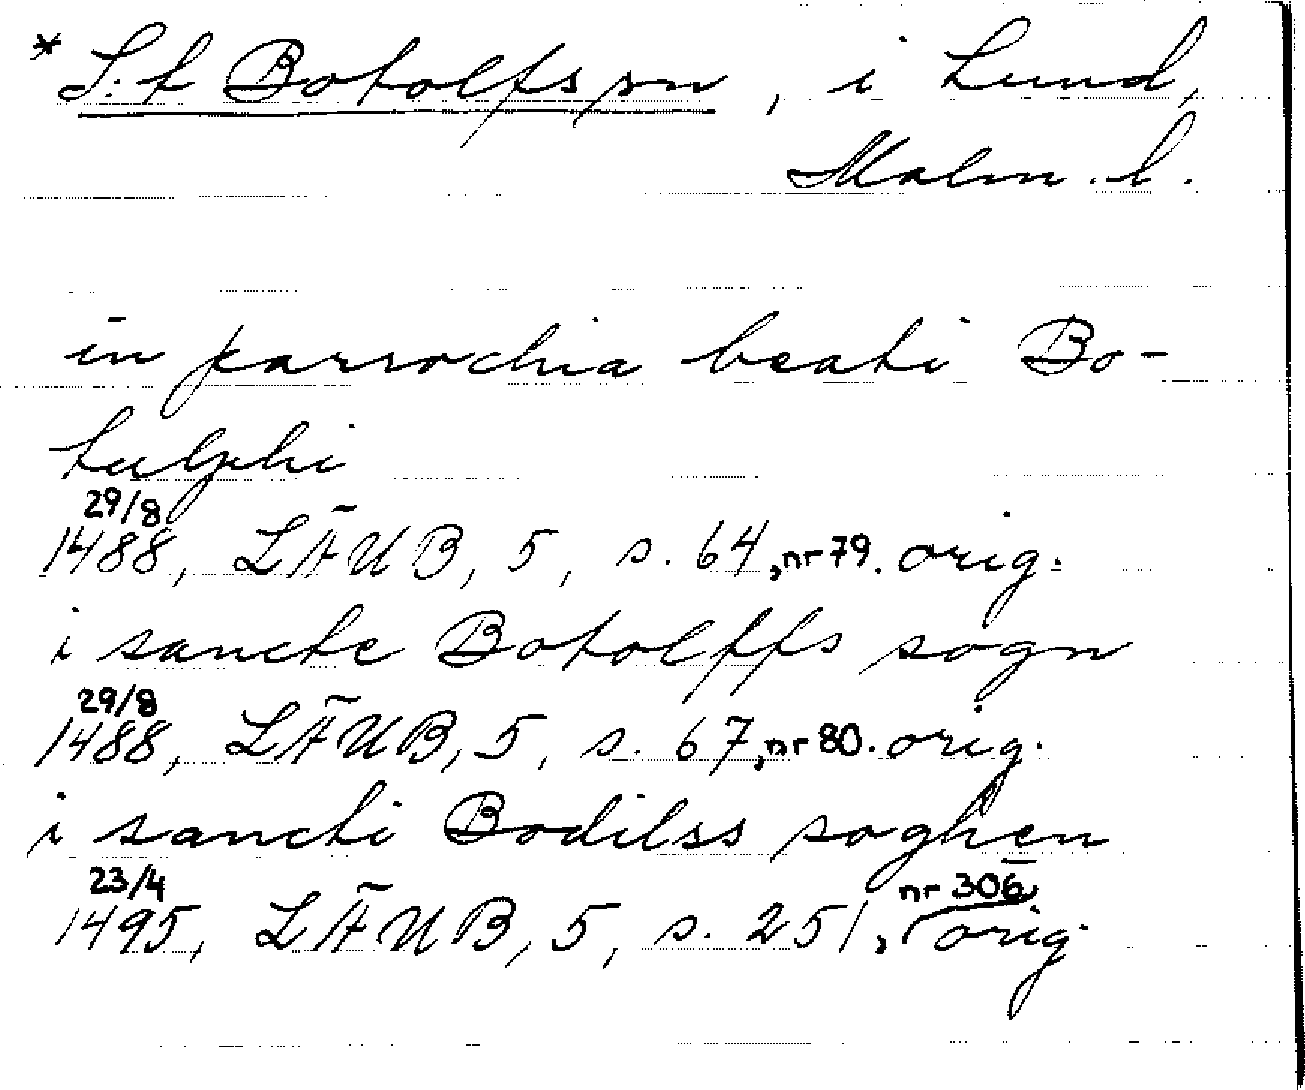 * S:t Botolfs sn, i Lund,
Malm. l.
in parrochia beati Bo-
tulphi
29/8
1488, LÄUB, 5, s. 64, nr 79. orig.
i sancte Botolffs sogn
29/8
1488, LÄUB, 5, s. 67, nr 80. orig.
i sancti Bodilss soghen
23/4 nr 306
1495, LÄUB, 5, s. 251, orig.